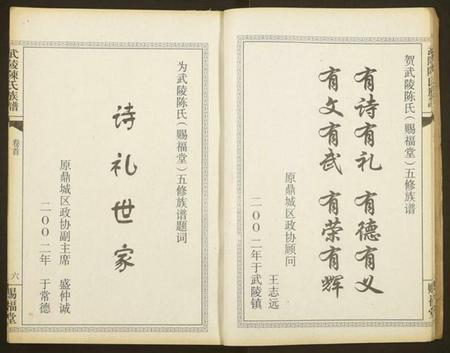 贺武陵陈氏（赐福堂）五修族谱
有诗有礼 有德有义
有文有武 有荣有辉
原鼎城区政协顾问 王志远
二00二年于武陵镇
赐福堂
武陵陳氏族譜
卷首
六
赐福堂
为武陵陈氏（赐福堂）五修族谱题词
诗礼世家
原鼎城区政协副主席 盛仲诚
二00二年 于常德